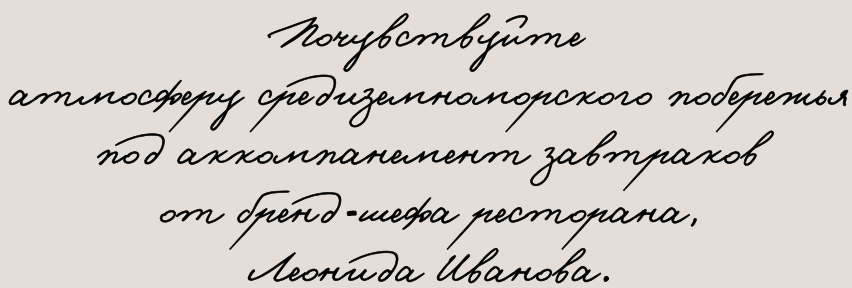 Почувствуйте
атмосферу средиземноморского побережья
под аккомпанемент завтраков
от бренд-шефа ресторана,
Леонида Иванова.